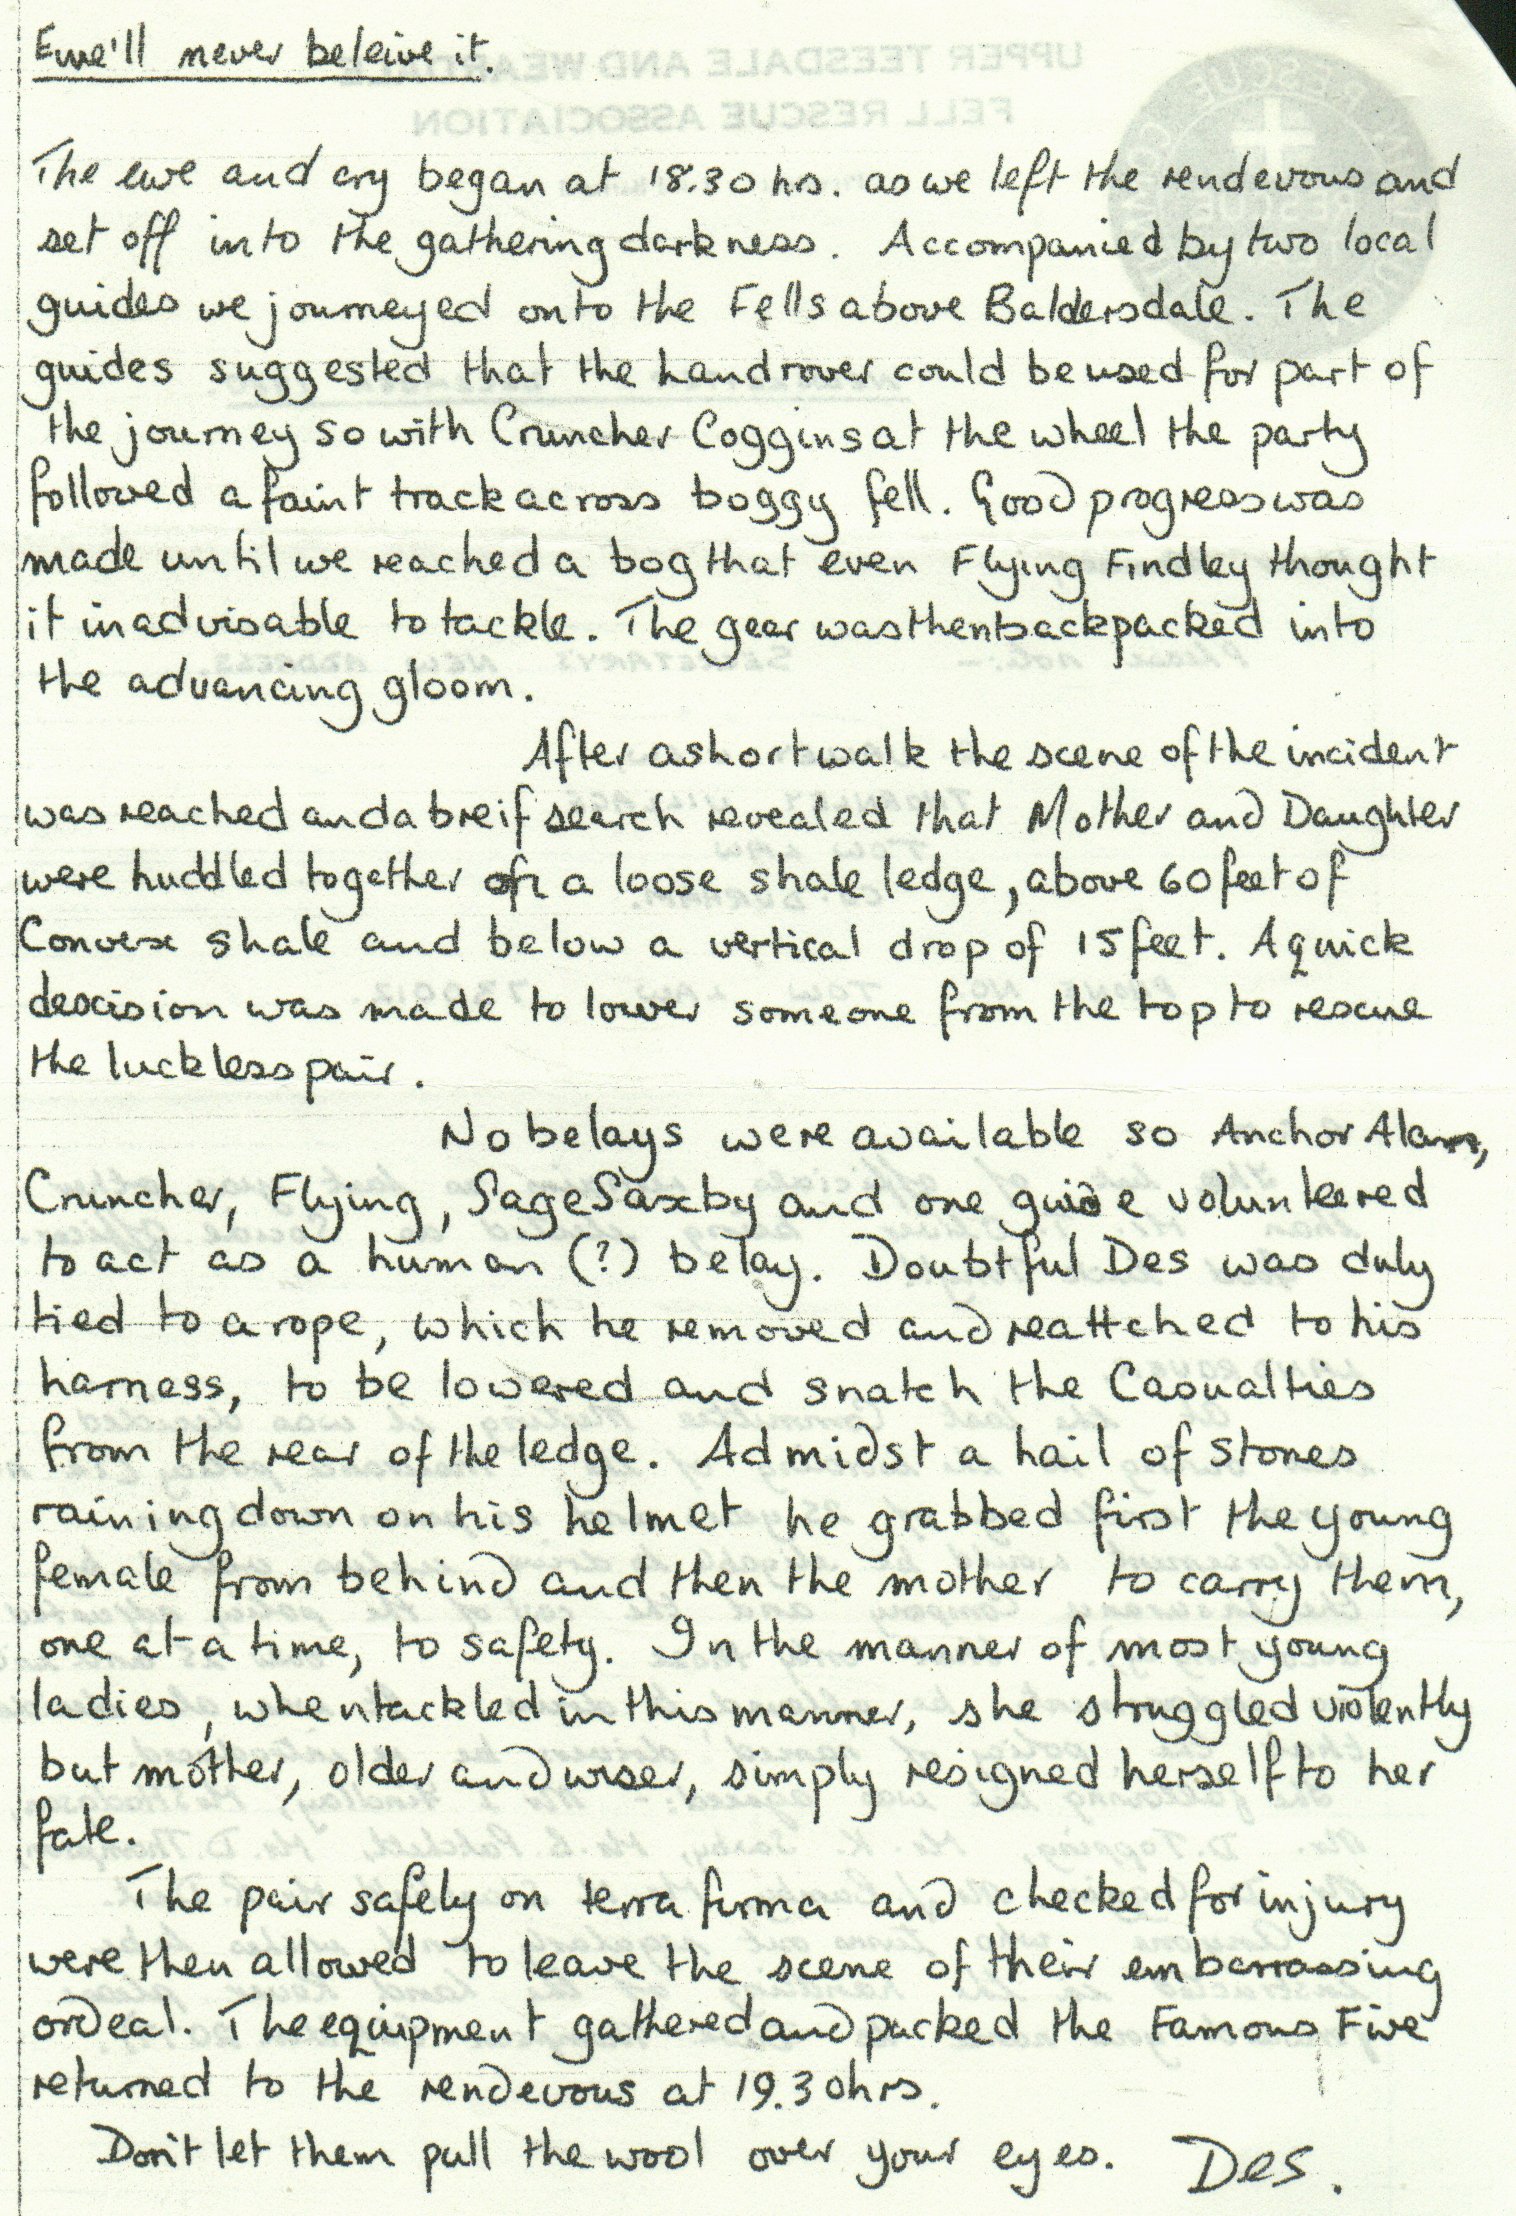 Ewe'll never beleive it.
UPPER TEESDALE AND WEARDALE
FELL RESCUE ASSOCIATION
The ewe and cry began at 18.30 hrs. as we left the rendevous and
set off into the gathering darkness. Accompanied by two local
guides we journeyed onto the Fells above Baldersdale. The
guides suggested that the handrover could be used for part of
the journey so with Cruncher Coggins at the wheel the party
followed a faint track across boggy fell. Good progress was
made until we reached a bog that even Flying Findley thought
it inadvisable to tackle. The gear was then backpacked into
the advancing gloom.
After a short walk the scene of the incident
was reached and a breif search revealed that Mother and Daughter
were huddled together on a loose shale ledge, above 60 feet of
Convex shale and below a vertical drop of 15 feet. A quick
descision was made to lower someone from the top to rescue
the luckless pair.
No belays were available so Anchor Alan,
Cruncher, Flying, Sage Saxby and one guide volunteered
to act as a human (?) belay. Doubtful Des was duly
tied to a rope, which he removed and reattched to his
harness, to be lowered and snatch the Casualties
from the rear of the ledge. Admidst a hail of stones
raining down on his helmet he grabbed first the young
female from behind and then the mother to carry them,
one at a time, to safety. In the manner of most young
ladies, when tackled in this manner, she struggled violently
but mother, older and wiser, simply resigned herself to her
fate.
The pair safely on terra firma and checked for injury
were then allowed to leave the scene of their embarrassing
ordeal. The equipment gathered and packed the Famous Five
returned to the rendevous at 19.30hrs.
Don't let them pull the wool over your eyes. Des.